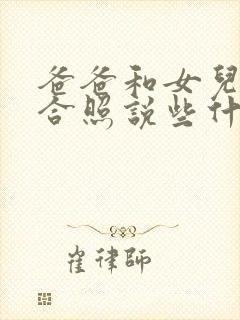 爸爸和女兒
合照說些什
崔律師